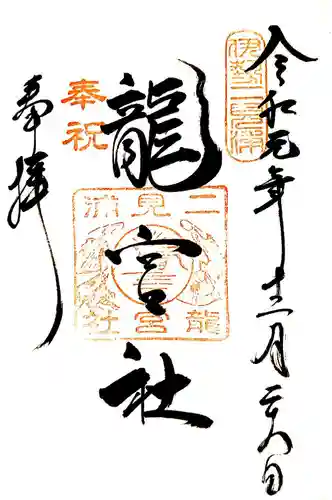 令和元年十二月二十八日
伊勢二見浦
龍宮社
二見浦
龍宮社
奉祝
奉拝